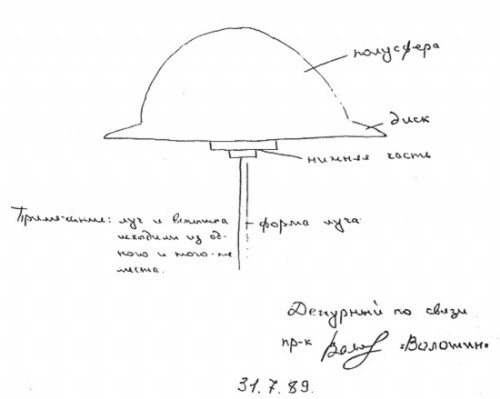 полусфера
диск
нижняя часть
Примечание: луч и вспышка
исходили из од-
ного и того-же
места.
форма луча
Дежурный по связи
пр-к «Волошин»
31.7.89.